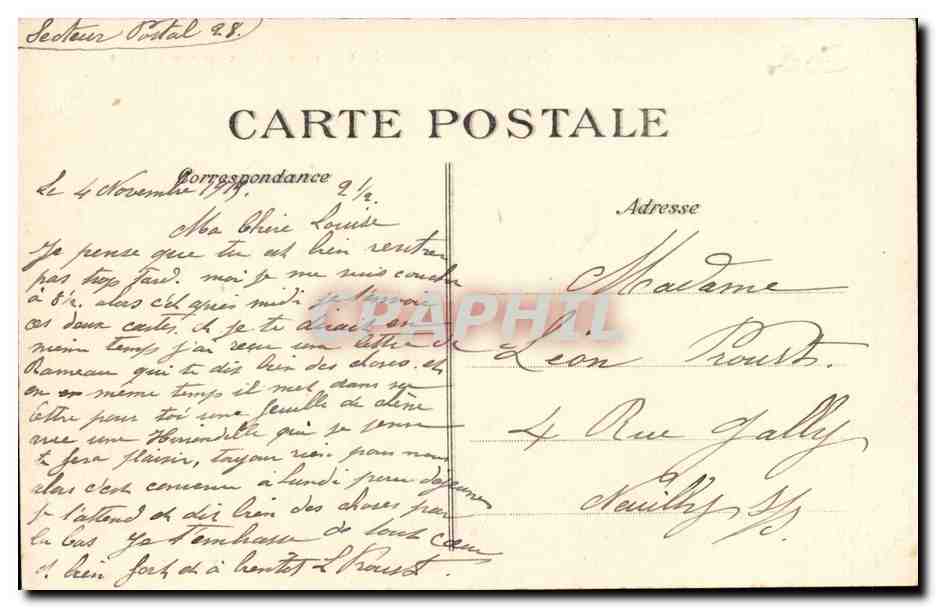 Secteur Postal 28.
CARTE POSTALE
Correspondance
Adresse
Le 4 Novembre 191 2 1/2.
Ma Chère Louise
Je pense que tu est bien rentrer
pas trop tard. moi je me suis coucher
à 8 1/2. alors cet après midi je t'envoie
ces deux cartes. et je te dirait en
même temps j'ai reçu une lettre de
Rameau qui te dis bien des choses. et
en en même temps il met dans sa
lettre pour toi une feuille de chêne
avec une Hirondelle qui je pense
te fera plaisir, toujour rien pour nous
alors c'est convenu à Lundi pour déjeuner
je t'attend et dis bien des choses par
la bas Je t'embrasse de tout cœur
et bien fort et à bientôt L Proust.
CPAPHIL
Madame
Léon Proust.
4 Rue Gally
Neuilly s/s.